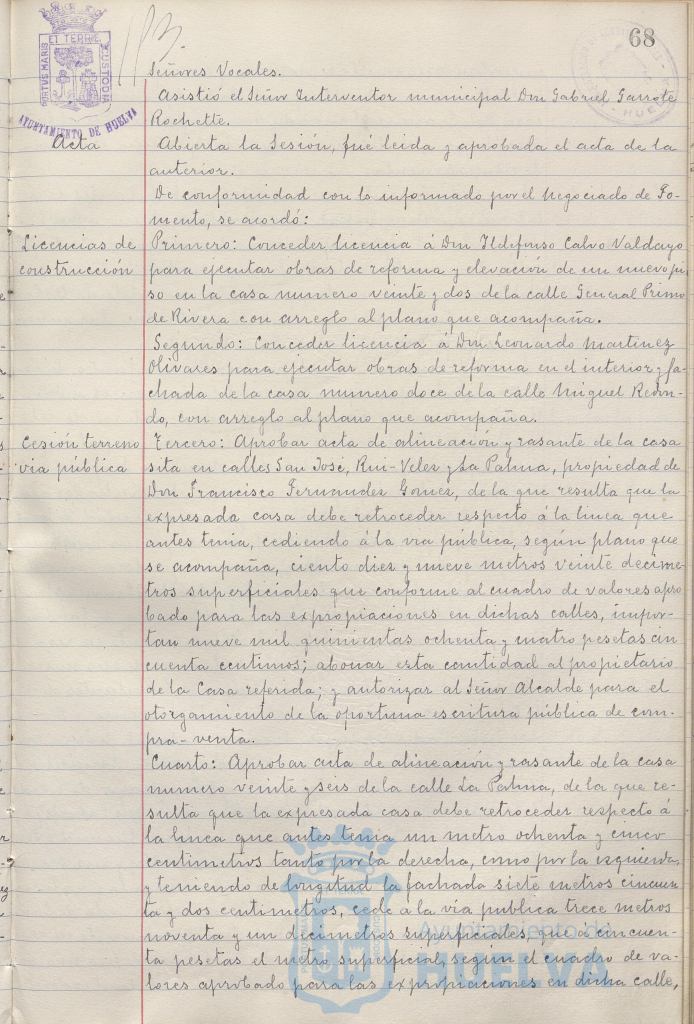 68
PORTUS MARIS ET TERRE CUSTODIA
AYUNTAMIENTO DE HUELVA
Señores Vocales.
Asistió el Señor Interventor municipal Don Gabriel Garrote
Rochette.
Acta
Abierta la Sesión, fué leida y aprobada el acta de la
anterior.
De conformidad con lo informado por el Negociado de Fo-
mento, se acordó:
Licencias de
construcción
Primero: Conceder licencia á Don Ildefonso Calvo Valdayo
para ejecutar obras de reforma y elevación de un nuevo pi-
so en la casa numero veinte y dos de la calle General Primo
de Rivera con arreglo al plano que acompaña.
Segundo: Conceder licencia á Don Leonardo Martinez
Olivares para ejecutar obras de reforma en el interior y fa-
chada de la casa numero doce de la calle Miguel Redon-
do, con arreglo al plano que acompaña.
Cesión terreno
via pública
Tercero: Aprobar acta de alineación y rasante de la casa
sita en calles San José, Rui-Velez y La Palma, propiedad de
Don Francisco Fernandez Gomez, de la que resulta que la
expresada casa debe retroceder respecto á la linea que
antes tenia, cediendo á la via pública, según plano que
se acompaña, ciento diez y nueve metros veinte decime-
tros superficiales que conforme al cuadro de valores apro-
bado para las expropiaciones en dichas calles, impor-
tan nueve mil quinientas ochenta y cuatro pesetas cin
cuenta centimos; abonar esta cantidad al propietario
de la Casa referida; y autorizar al Señor Alcalde para el
otorgamiento de la oportuna escritura pública de com-
pra-venta.
Cuarto: Aprobar acta de alineación y rasante de la casa
numero veinte y seis de la calle La Palma, de la que re-
sulta que la expresada casa debe retroceder respecto á
la linea que antes tenia un metro ochenta y cinco
centimetros tanto por la derecha, como por la izquierda,
y teniendo de longitud la fachada siete metros cincuen-
ta y dos centimetros, cede á la via publica trece metros
noventa y un decimetros superficiales, que á cincuen-
ta pesetas el metro superficial, según el cuadro de va-
lores aprobado para las expropiaciones en dicha calle,
Ayuntamiento de
HUELVA